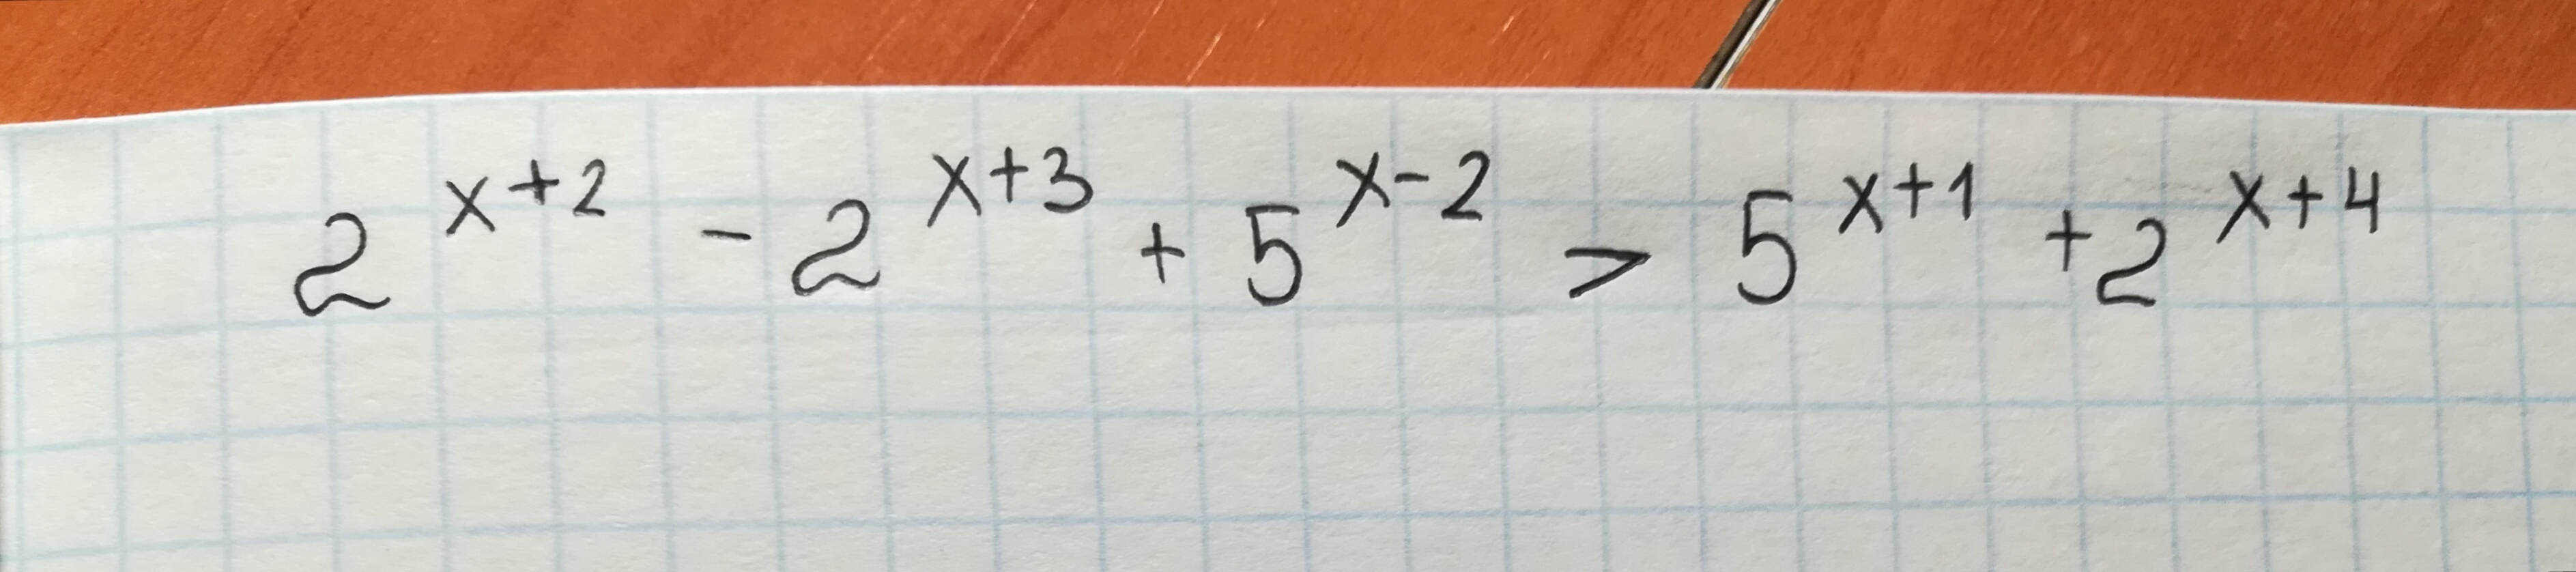 2^{x+2} - 2^{x+3} + 5^{x-2} > 5^{x+1} + 2^{x+4}